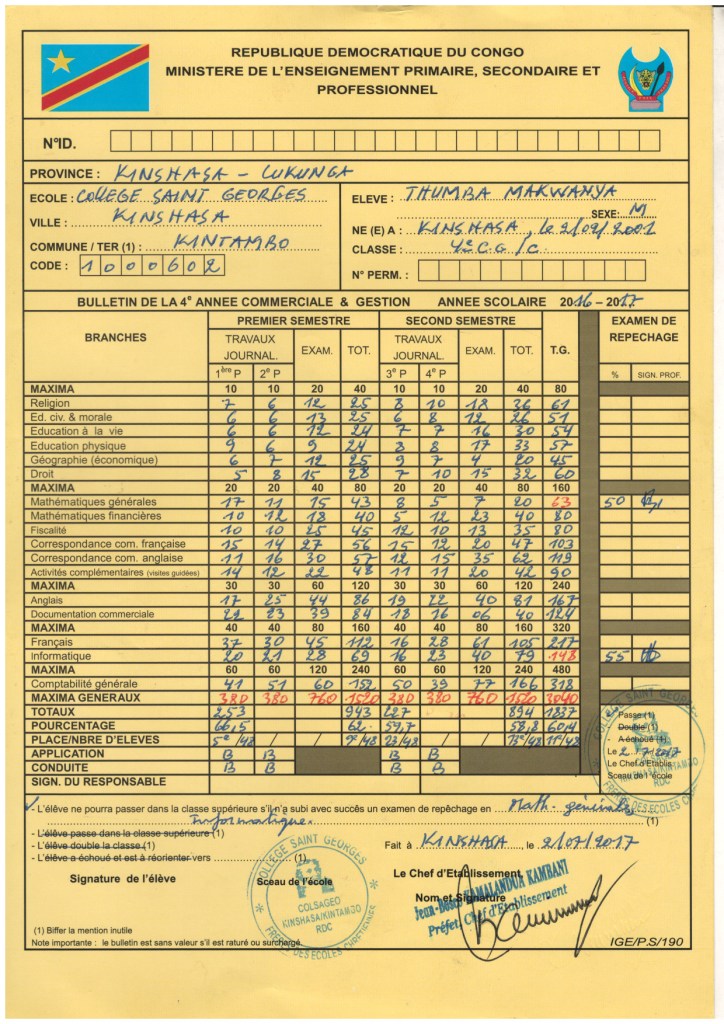 REPUBLIQUE DEMOCRATIQUE DU CONGO
MINISTERE DE L'ENSEIGNEMENT PRIMAIRE, SECONDAIRE ET
PROFESSIONNEL
N°ID.
PROVINCE : KINSHASA - LUKUNGA
ECOLE : COLLEGE SAINT GEORGES
VILLE : KINSHASA
COMMUNE / TER (1) : KINTAMBO
CODE : 1000602
ELEVE : THUMBA MAKWANYA
SEXE: M
NE (E) A : KINSHASA, le 2/02/2001
CLASSE : 4e C.G /C
N° PERM. :
BULLETIN DE LA 4e ANNEE COMMERCIALE & GESTION ANNEE SCOLAIRE 2016 - 2017
BRANCHES PREMIER SEMESTRE SECOND SEMESTRE T.G. EXAMEN DE REPECHAGE
TRAVAUX JOURNAL. EXAM. TOT. TRAVAUX JOURNAL. EXAM. TOT.
1ère P 2e P 3e P 4e P % SIGN. PROF.
MAXIMA 10 10 20 40 10 10 20 40 80
Religion 7 6 12 25 8 10 18 36 61
Ed. civ. & morale 6 6 13 25 6 8 12 26 51
Education à la vie 6 6 12 24 7 7 16 30 54
Education physique 9 6 9 24 8 8 17 33 57
Géographie (économique) 6 7 12 25 9 7 4 20 45
Droit 5 8 15 28 7 10 15 32 60
MAXIMA 20 20 40 80 20 20 40 80 160
Mathématiques générales 17 11 15 43 8 5 7 20 63 50
Mathématiques financières 10 12 18 40 5 12 23 40 80
Fiscalité 10 10 25 45 12 10 13 35 80
Correspondance com. française 15 14 27 56 15 12 20 47 103
Correspondance com. anglaise 11 16 30 57 12 15 35 62 119
Activités complémentaires (visites guidées) 14 12 22 48 11 11 20 42 90
MAXIMA 30 30 60 120 30 30 60 120 240
Anglais 17 25 44 86 19 22 40 81 167
Documentation commerciale 22 23 39 84 18 16 06 40 124
MAXIMA 40 40 80 160 40 40 80 160 320
Français 37 30 45 112 16 28 61 105 217
Informatique 20 21 28 69 16 23 40 79 148 55
MAXIMA 60 60 120 240 60 60 120 240 480
Comptabilité générale 41 51 60 152 50 39 77 166 318
MAXIMA GENERAUX 380 380 760 1520 380 380 760 1520 3040
TOTAUX 253 943 227 894 1837
POURCENTAGE 66,5 62 59,7 58,8 60,4
PLACE/NBRE D'ELEVES 5e/48 / / 9e/48 23/48 / / 13e/48 11e/48
APPLICATION B B B B
CONDUITE B B B B
SIGN. DU RESPONSABLE
Passe (1)
Double (1)
A échoué (1)
Le 2/7/2017
Le Chef d'Etablis
Sceau de l'école
COLLEGE SAINT GEORGES
KINSHASA/KINTAMBO
FRERES DES ECOLES CHRETIENNES
- L'élève ne pourra passer dans la classe supérieure s'il n'a subi avec succès un examen de repêchage en Math. générales
Informatique. (1)
- L'élève passe dans la classe supérieure (1)
- L'élève double la classe.(1)
- L'élève a échoué et est à réorienter vers (1)
Fait à KINSHASA, le 2/07/2017
Signature de l'élève
Sceau de l'école
Le Chef d'Etablissement,
Nom et Signature
COLLEGE SAINT GEORGES
COLSAGEO
KINSHASA/KINTAMBO
RDC
FRERES DES ECOLES CHRETIENNES
Préfet, Chef d'Etablissement
(1) Biffer la mention inutile
Note importante : le bulletin est sans valeur s'il est raturé ou surchargé.
IGE/P.S/190